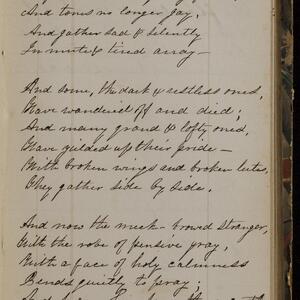 And tones no longer gay,
And gather sad & silently
In mute & tired array—
And some, the dark & restless ones,
Have wandered off and died;
And many grand & lofty ones,
Have yielded up their pride—
With broken wings and broken lutes,
They gather side by side.
And now the meek-browd stranger,
With the robe of pensive gray,
With a face of holy calmness
Bends quietly to pray;